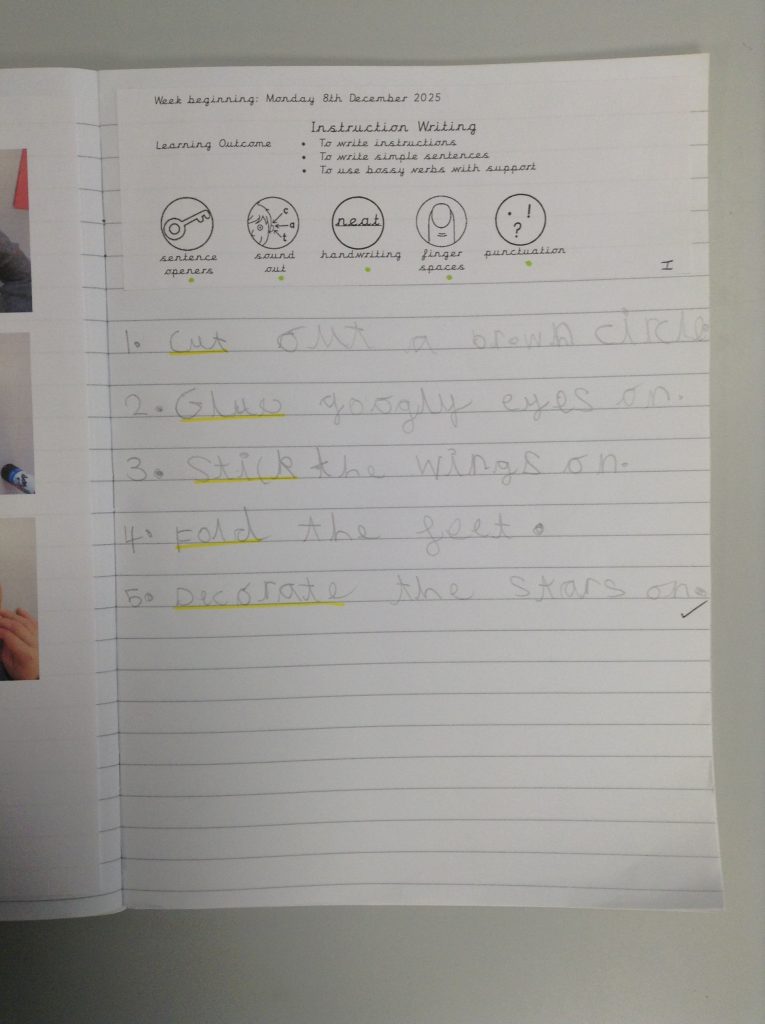 Week beginning: Monday 8th December 2025
Instruction Writing
Learning Outcome
• To write instructions
• To write simple sentences
• To use bossy verbs with support
c
a
t
neat
. !
?
sentence openers
sound out
handwriting
finger spaces
punctuation
I
1. Cut out a brown circle.
2. Glue googly eyes on.
3. Stick the wings on.
4. Fold the feet.
5. Decorate the stars on.